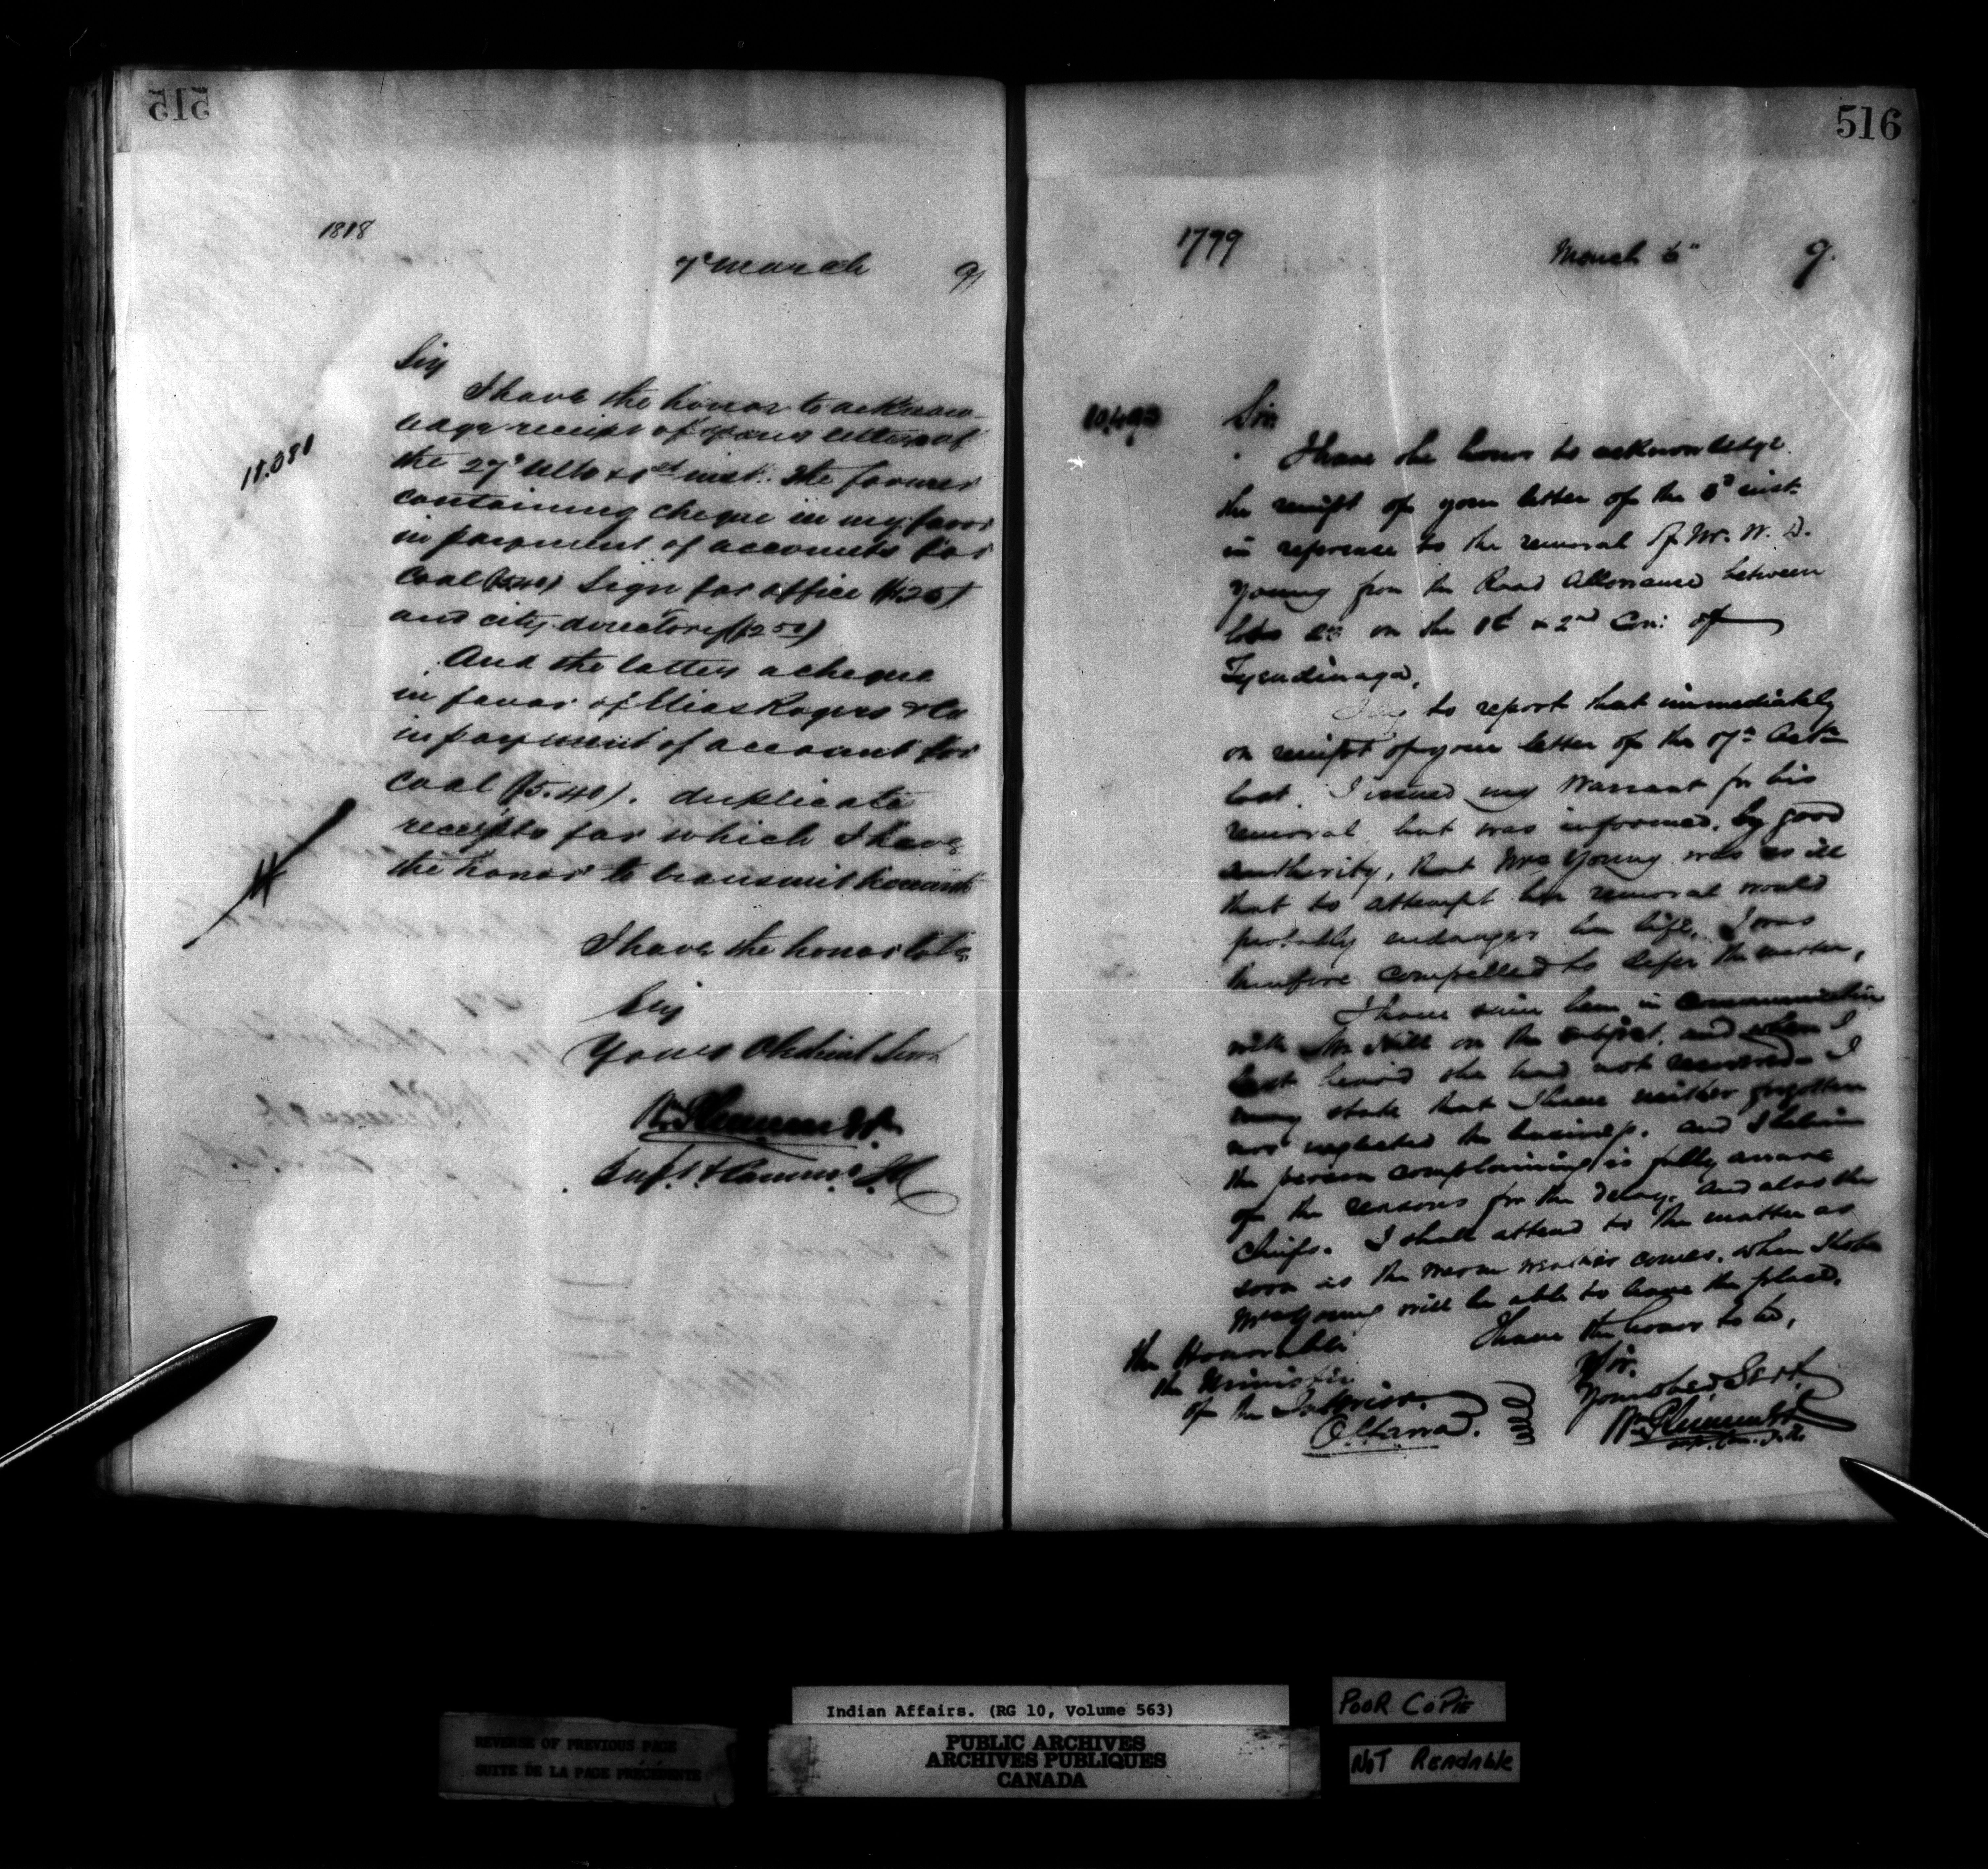 515
1818
7th March 9
Sir
I have the honor to acknow-
ledge receipt of your letters of
the 27th Ulto & 1st inst. The former
containing cheque in my favor
in payment of accounts for
Coal ($5.40) Sign for office
and city directory ($2.50)
And the latter a cheque
in favor of Rogers & Co
in payment of account for
Coal ($5.40). duplicate
receipts for which I have
the honor to transmit herewith
I have the honor to be
Sir
Your Obedient Servt
Wm Plummer
Supt. & Commr. I.A.
516
1799
March 9
Sir
I have the honor to acknowledge
the receipt of your letter of the inst.
in reference to the removal of Mr. W. D.
Young from the Road Allowance between
lots on the 1st & 2nd Con: of
Tyendinaga,
I beg to report that immediately
on receipt of your letter of the 7th Octr
last. I issued my Warrant for his
removal, but was informed, by good
authority, that Mrs Young was so ill
that to attempt her removal would
probably endanger her life, I was
therefore compelled to defer the matter,
I have since been in Communication
with Mr Hill on the subject, and when I
last heard she had not removed. I
may state that I have neither forgotten
nor neglected the business, and I believe
the person complaining is fully aware
of the reasons for the delay. and also the
Chiefs. I shall attend to the matter as
soon as the warm weather comes. when I hope
Mrs Young will be able to leave the place.
I have the honor to be,
Sir.
Your obed. Servt.
Wm Plummer
The Honorable
the Minister
of the Interior.
Ottawa.
Indian Affairs. (RG 10, Volume 563)
PUBLIC ARCHIVES
ARCHIVES PUBLIQUES
CANADA
REVERSE OF PREVIOUS PAGE
SUITE DE LA PAGE PRÉCÉDENTE
POOR COPIE
NOT READABLE